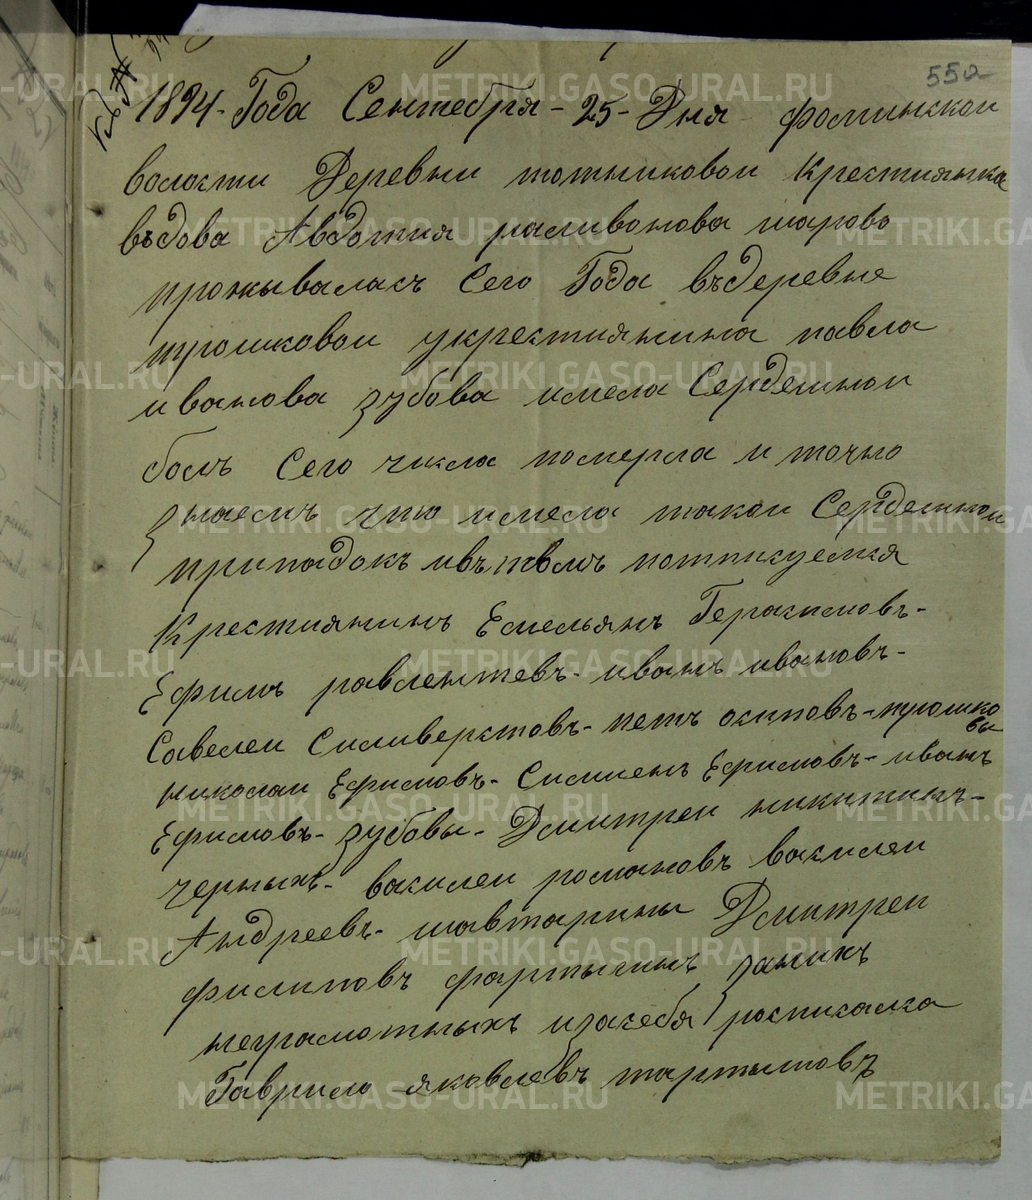 552
КъА
1894 - Года Сентебря - 25 - Дня фоминскои
волости Деревни тотниковои Крестиянка
въдова Авдотия раливонова шарова
проживаласъ Сего Года въдеревне
трошковои укрестиянина павла
иванова зубова имела Сердешнои
боль Сего числа померла и точно
знаемъ что имела такои Сердешнои
припадокъ ивътвомъ потписуемся
Крестиянинъ Емельянъ Герасимовъ -
Ефимъ равлентевъ - иванъ ивановъ -
Савелеи Силиверстовъ - петъ осиповъ - трошковы
николаи Ефимовъ - Симиенъ Ефимовъ - иванъ
Ефимовъ - зубовы - Дмитреи никитинъ -
черныхъ - василеи романовъ василеи
Андреевъ - шавтарины Дмитреи
филиповъ фартыгинъ занихъ
неграмотныхъ изасебя росписалса
Гаврило яковлевъ тартышовъ
METRIKI.GASO-URAL.RU